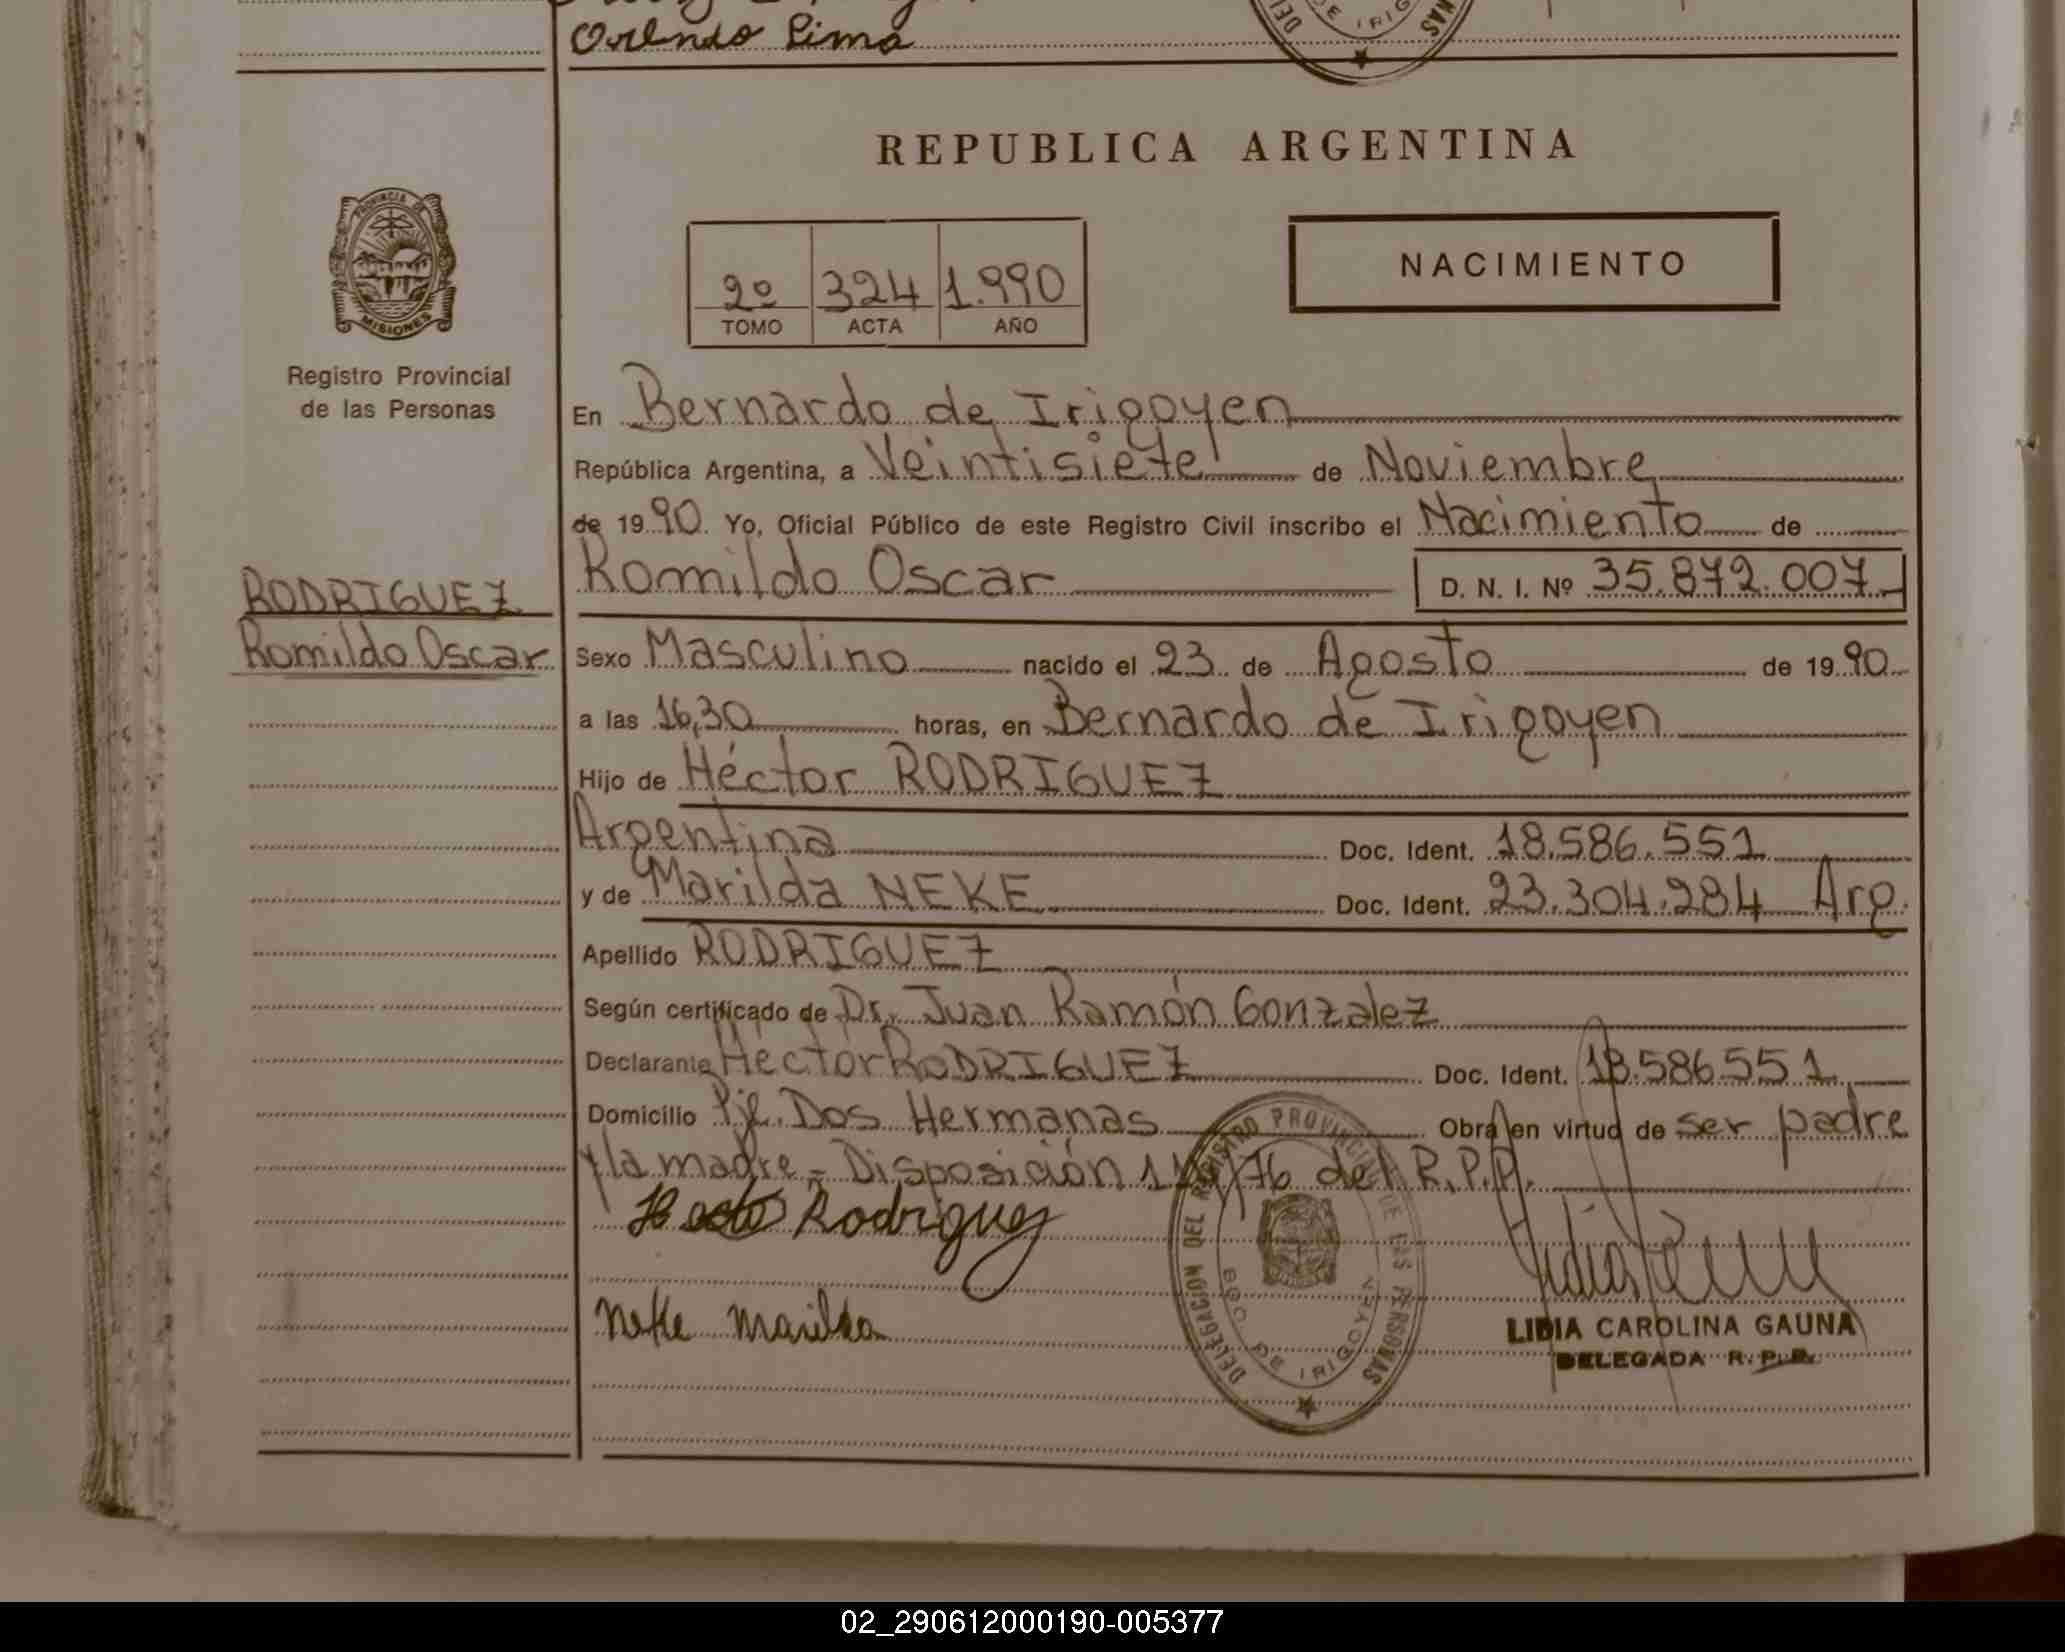 Orlando Lima
REPUBLICA ARGENTINA
PROVINCIA DE
MISIONES
Registro Provincial
de las Personas
2º 324 1.990
TOMO ACTA AÑO
NACIMIENTO
En Bernardo de Irigoyen
República Argentina, a Veintisiete de Noviembre
de 19 90 Yo, Oficial Público de este Registro Civil inscribo el Nacimiento de
Romildo Oscar D. N. I. Nº 35.872.007
RODRIGUEZ
Romildo Oscar
Sexo Masculino nacido el 23 de Agosto de 19 90
a las 16,30 horas, en Bernardo de Irigoyen
Hijo de Héctor RODRIGUEZ
Argentina Doc. Ident. 18.586.551
y de Marilda NEKE Doc. Ident. 23.304.284 Arg.
Apellido RODRIGUEZ
Según certificado de Dr. Juan Ramón Gonzalez
Declarante Héctor RODRIGUEZ Doc. Ident. 18.586.551
Domicilio Pje. Dos Hermanas Obra en virtud de ser padre
y la madre = Disposición /76 del R.P.P.
Hecto Rodriguez
Neke Marilda
DELEGACION DEL REGISTRO PROVINCIAL DE LAS PERSONAS
BDO. DE IRIGOYEN
LIDIA CAROLINA GAUNA
DELEGADA R.P.P.
02_290612000190-005377